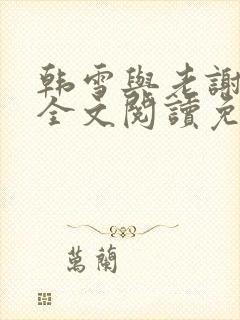 韩雪與老謝
全文閱讀免
萬蘭